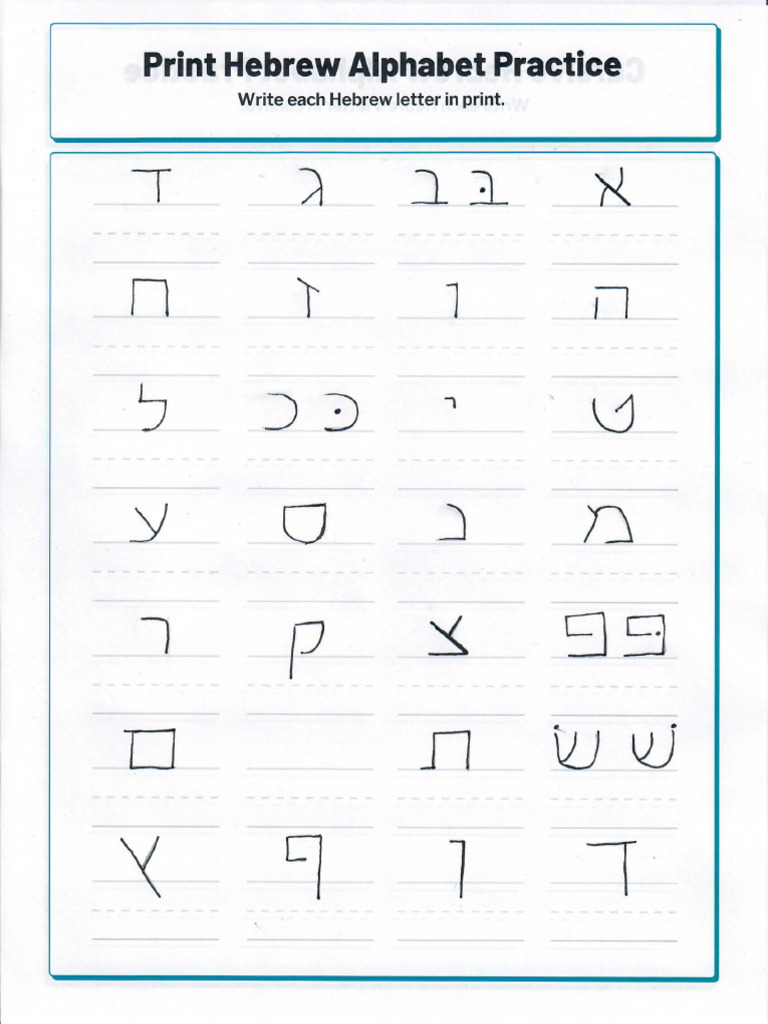 Print Hebrew Alphabet Practice
Write each Hebrew letter in print.
א בּ ב ג ד
ה ו ז ח
ט י כּ כ ל
מ נ ס ע
פּ פ צ ק ר
שׁ שׂ ת ם
ך ן ף ץ